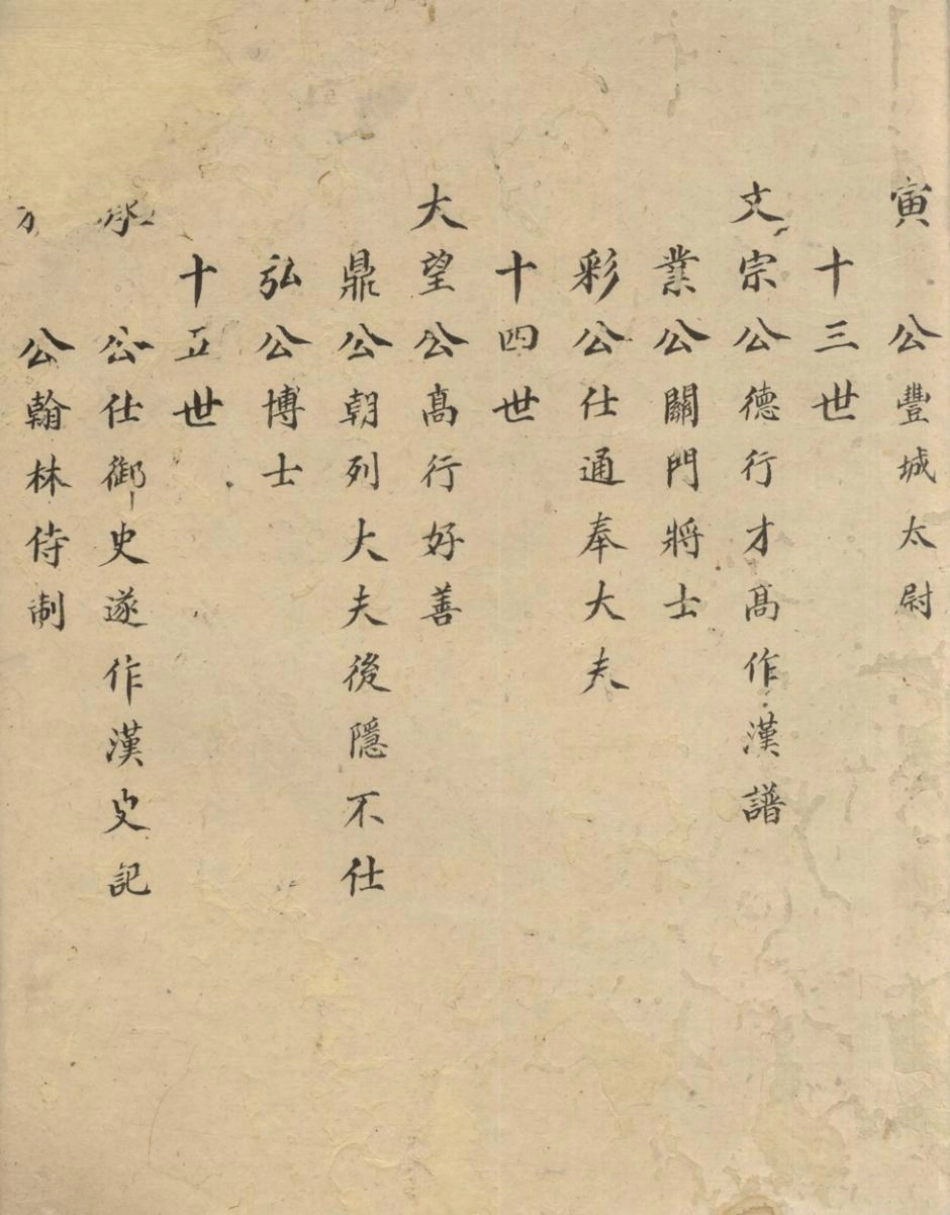 寅公豐城太尉
十三世
文宗公德行才高作漢譜
業公關門將士
彩公仕通奉大夫
十四世
大望公髙行好善
鼎公朝列大夫後隱不仕
弘公博士
十五世
公仕御史遂作漢史記
公翰林侍制